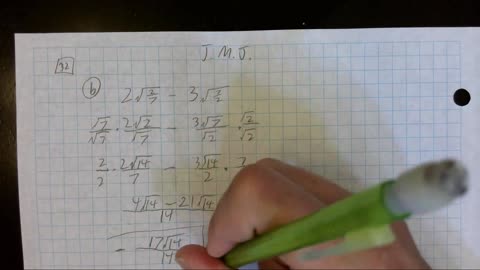 J. M. J.
32
b 2√2/7 − 3√7/2
√7/√7 · 2√2/√7 − 3√7/√2 · √2/√2
2/2 · 2√14/7 − 3√14/2 · 7/
4√14 − 21√14/14
− 17√14/14